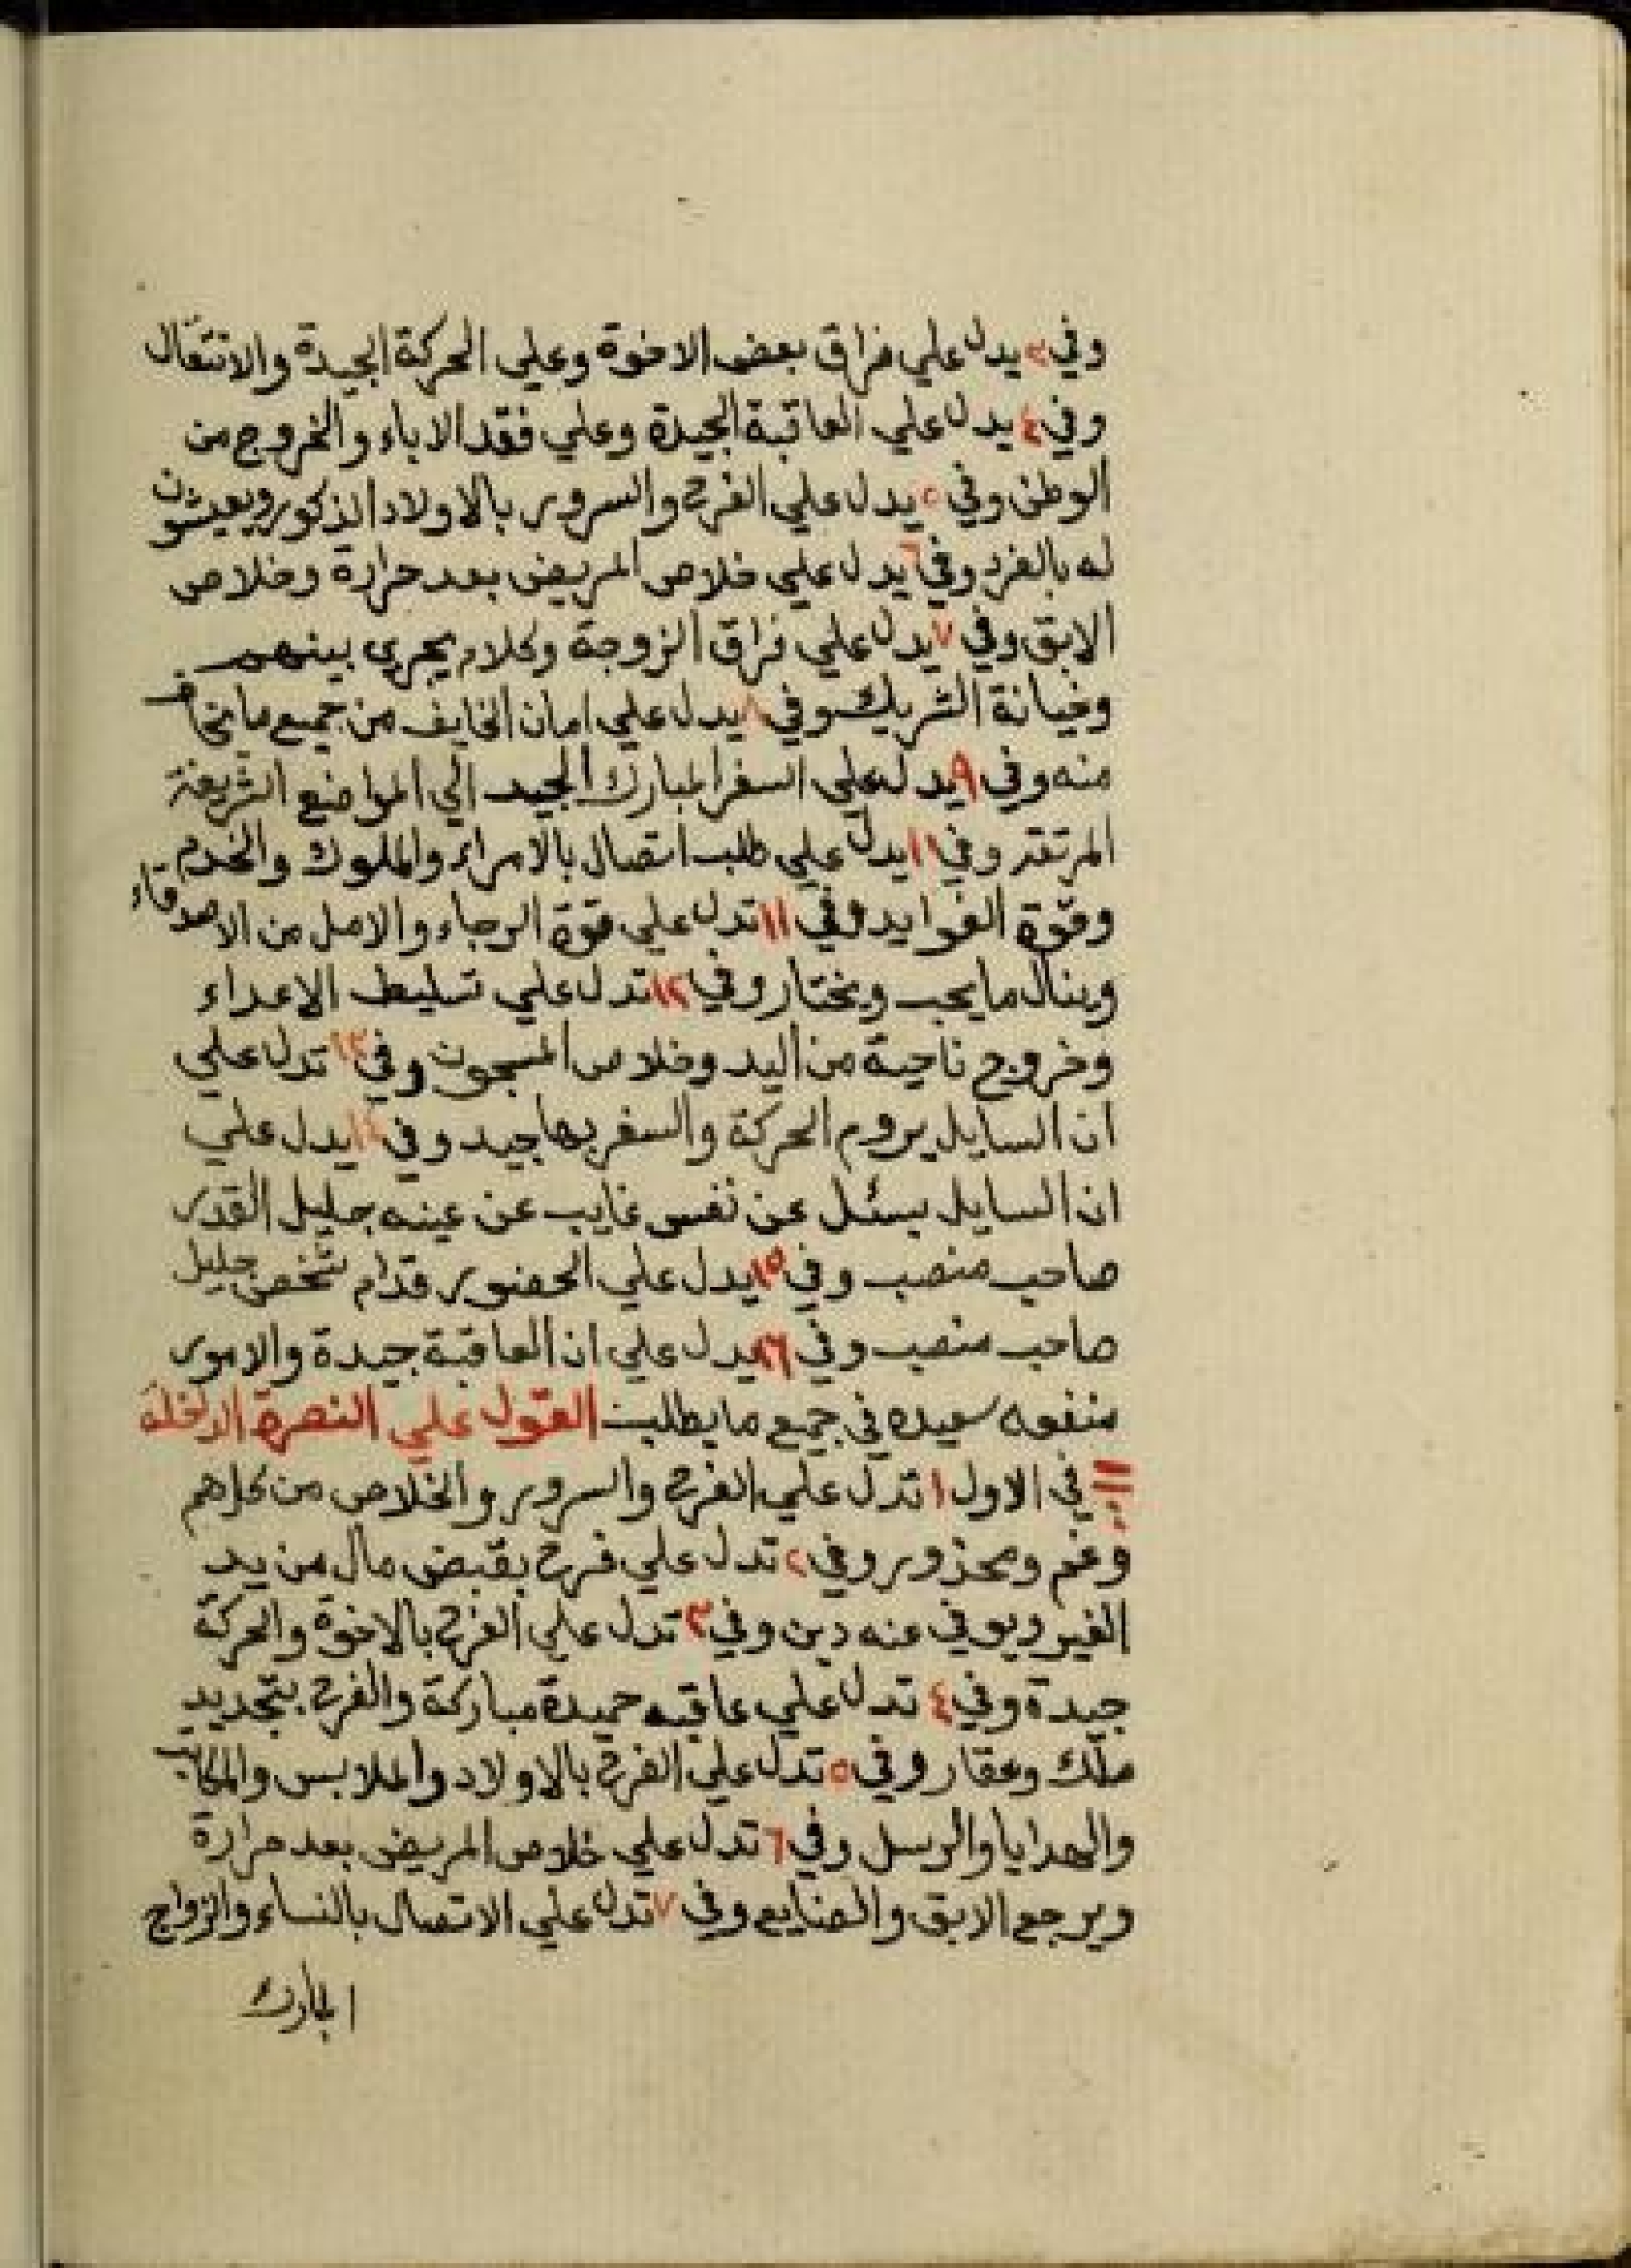 وفي ٣ يدل علي فراق بعض الاخوة وعلي الحركة الجيدة والانتقال
وفي ٤ يدل علي العاقبة الجيدة وعلي فقد الاباء والخروج من
الوطن وفي ٥ يدل علي الفرح والسرور بالاولاد الذكور ويعيشون
له بالفرد وفي ٦ يدل علي خلاص المريض بعد حرارة وخلاص
الابق وفي ٧ يدل علي فراق الزوجة وكلام يجري بينهم
وخيانة الشريك وفي ٨ يدل علي امان الخايف من جميع ما يخاف
منه وفي ٩ يدل علي السفر المبارك الجيد الي المواضع الشريفة
وفي ١٠ يدل علي طلب اتصال بالامراء والملوك والخدم
وقوة الفوايد وفي ١١ تدل علي قوة الرجاء والامل من الاصدقاء
وينال ما يحب ويختار وفي ١٢ تدل علي تسليط الاعداء
وخروج ناحية من اليد وخلاص المسجون وفي ١٣ تدل علي
ان السايل يروم الحركة والسفر بها جيد وفي ١٤ يدل علي
ان السايل يسئل عن نفس غايب عن عينه جليل القدر
صاحب منصب وفي ١٥ يدل علي الحضور قدام شخص جليل
صاحب منصب وفي ١٦ يدل علي ان العاقبة جيدة والامور
سعيده في جميع ما يطلب القول علي النصرة الداخلة
في الاول ١ تدل علي الفرح والسرور والخلاص من كل هم
وغم ومحذور وفي ٢ تدل علي فرح بقبض مال من يد
الغير ويوفي عنه دين وفي ٣ تدل علي الفرح بالاخوة والحركة
جيدة وفي ٤ تدل علي عاقبه حميدة مباركة والفرح بتجديد
ملك وعقار وفي ٥ تدل علي الفرح بالاولاد والملابس والمكاتيب
والهدايا والرسل وفي ٦ تدل علي خلاص المريض بعد حرارة
ويرجع الابق والضايع وفي ٧ تدل علي الاتصال بالنساء والزواج
المبارك